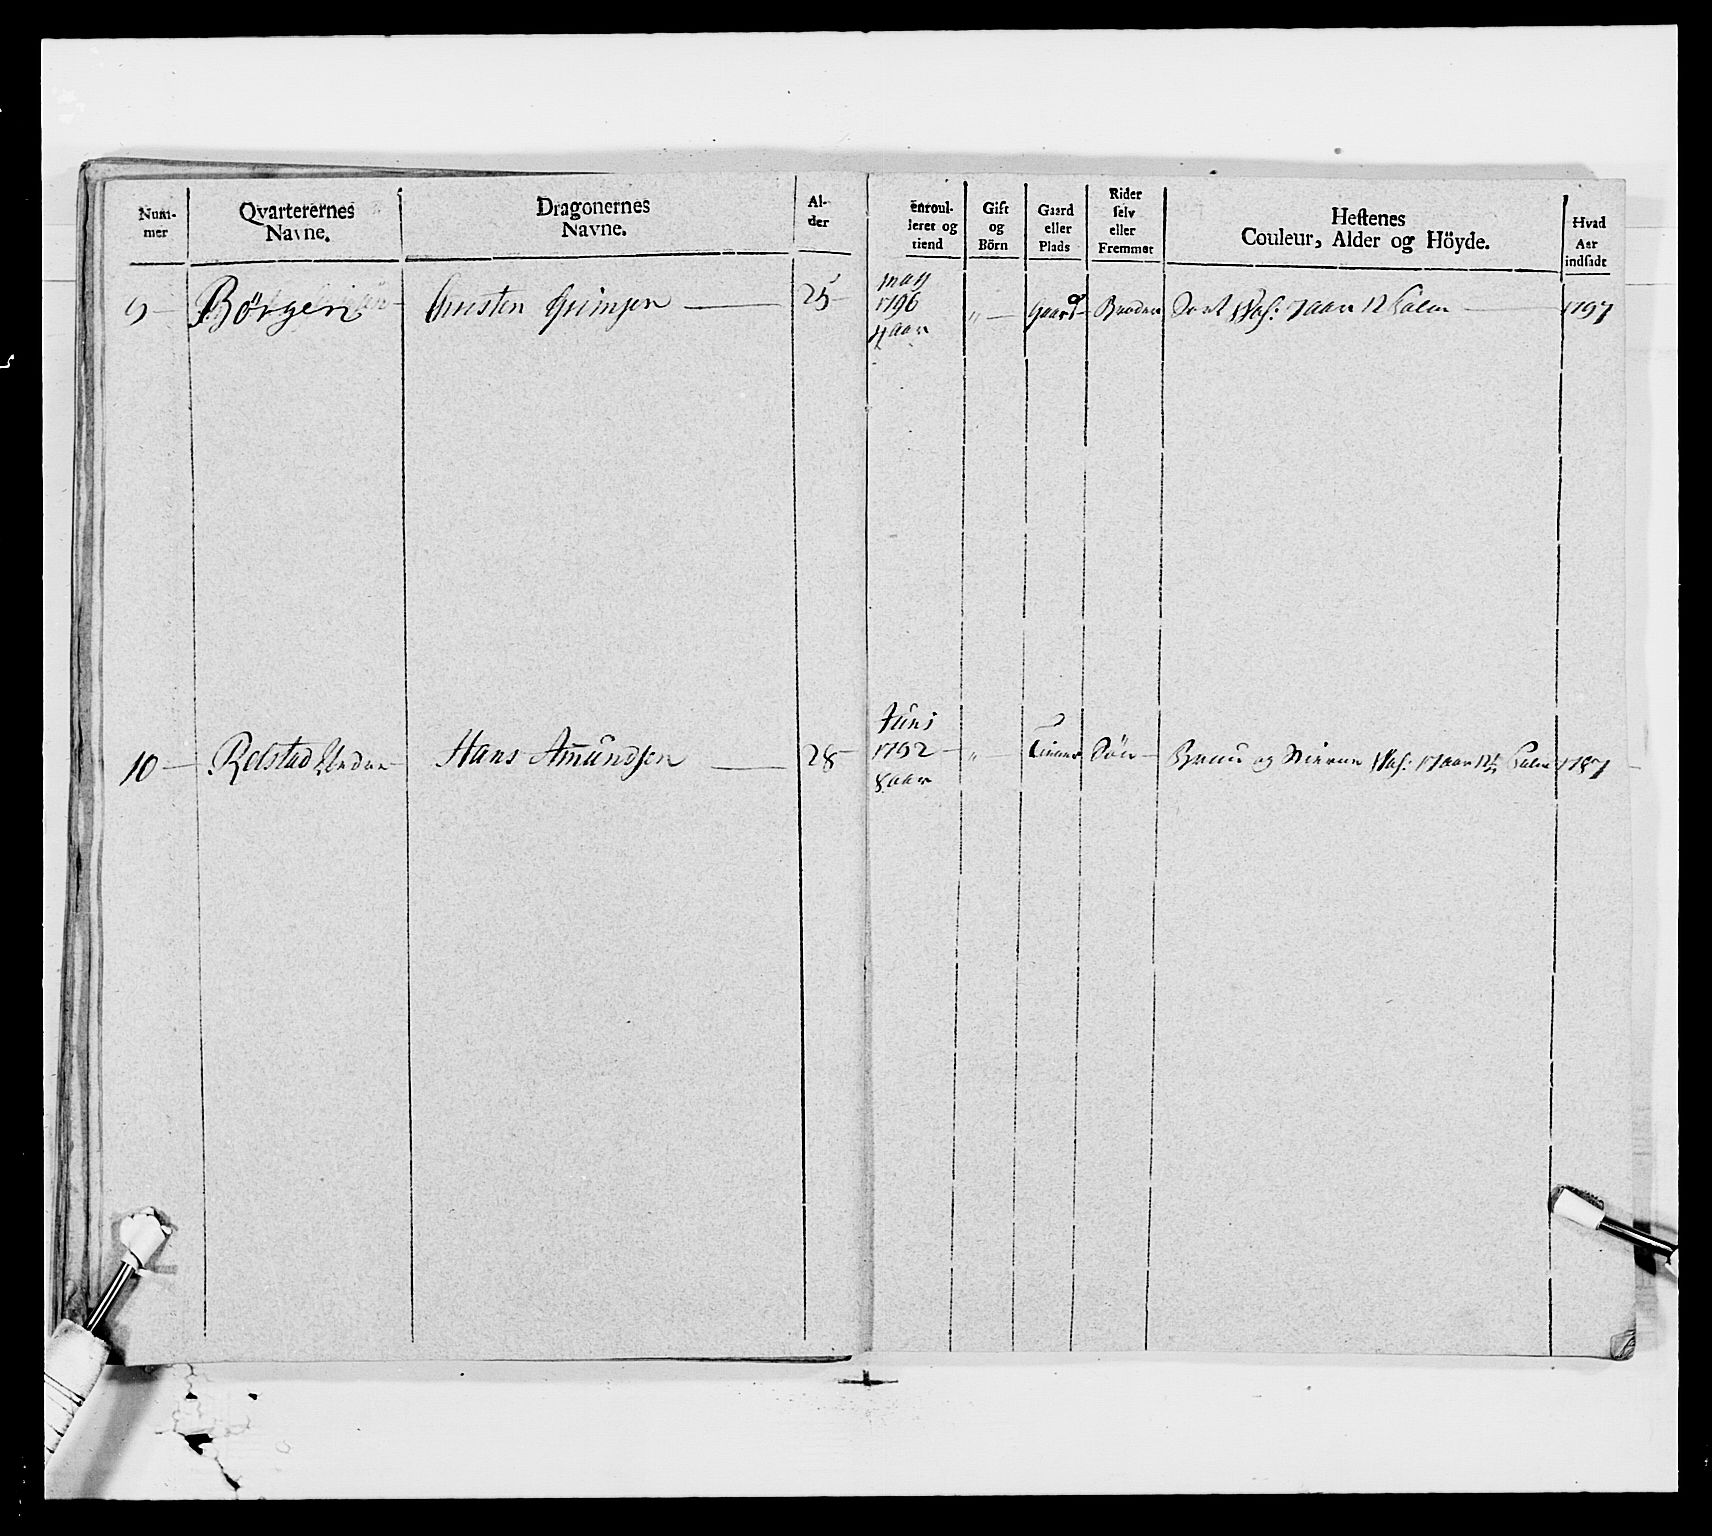 Num-
mer
Qvarterernes
Navne.
Dragonernes
Navne.
Al-
der
enroul-
leret og
tiend
Gift
og
Börn
Gaard
eller
Plads
Rider
selv
eller
Fremmet
Hestenes
Couleur, Alder og Höyde.
Hvad
Aar
indsadt
9 Börgen Christen Grimsen 25 Mag 1796 4 aar „ Gaard Broder Sort Wal: 7 aar 12 Palm 1797
10 Relstad Nedre Hans Amundsen 28 Juni 1792 8 aar „ Söu Bruun og Wal: 17 aar 12½ Palm 1787